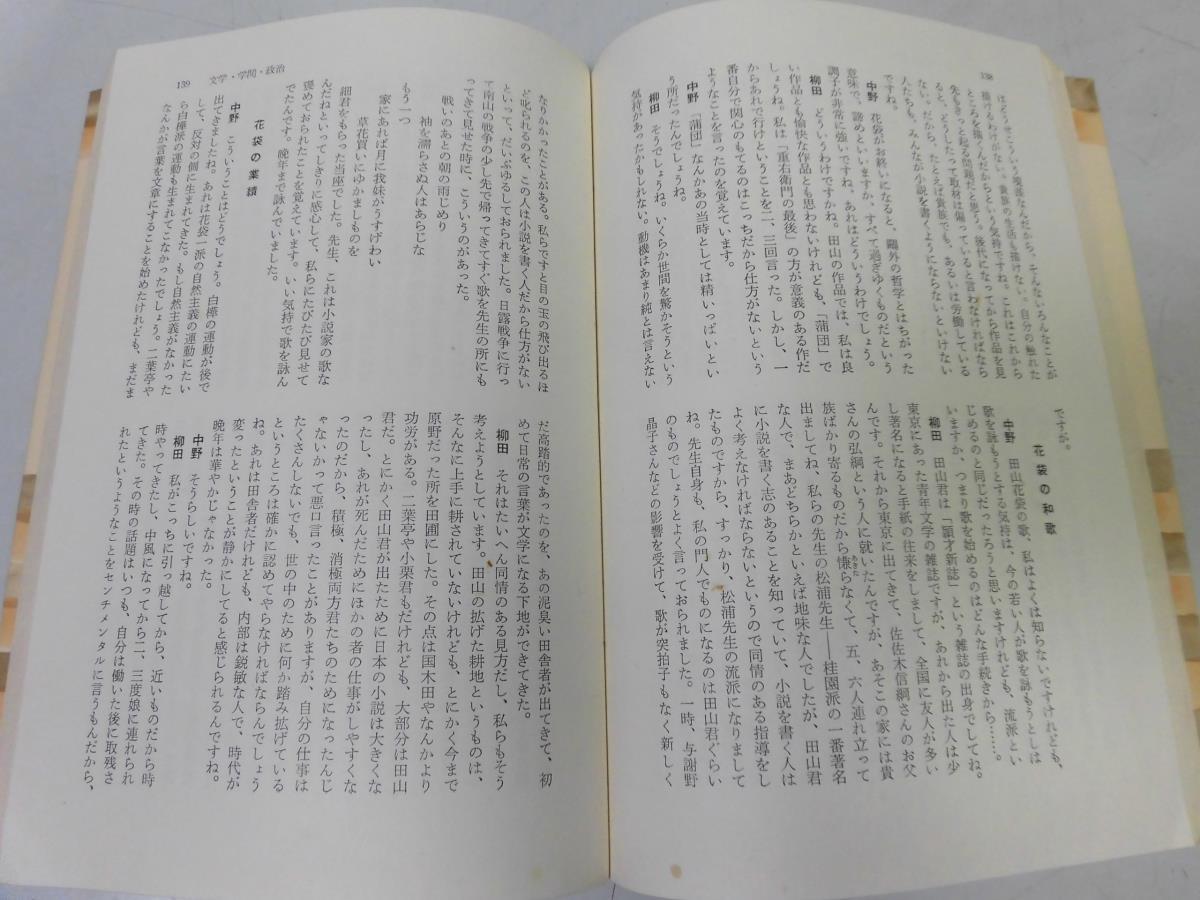 138
はどうせこういう境涯なんだから、そんないろんなことが
描けるわけがない。貴族の生活も描けない。自分の触れた
ところを描くんだからという気持ですね。これはこれから
先もきっと起る問題だと思う。後代になってから作品を見
ると、どうしたって取材は偏っていると言わなければなら
ない。だから、たとえば貴族でも、あるいは労働している
人たちも、みんなが小説を書くようにならないといけない
中野 花袋がお終いになると、鷗外の哲学とはちがった
意味で、諦めといいますか、すべて過ぎゆくものだという
調子が非常に強いですね。あれはどういうわけでしょう。
柳田 どういうわけですかね。田山の作品では、私は良
い作品とも愉快な作品とも思わないけれども、「蒲団」で
すね。私は「重右衛門の最後」の方が意義のある作だ
からあれで行けということを二、三回言った。しかし、一
番自分で関心のもてるのはこっちだから仕方がないという
ようなことを言ったのを覚えています。
中野 「蒲団」なんかあの当時としては精いっぱいとい
う所だったんでしょうね。
柳田 そうでしょうね。いくらか世間を驚かそうという
気持があったかもしれない。動機はあまり純とは言えない
ですが。
花袋の和歌
中野 田山花袋の歌、私はよくは知らないですけれども、
歌を詠もうとする気持は、今の若い人が歌を詠もうとしは
じめるのと同じだったろうと思いますけれども、流派とい
いますか、つまり歌を始めるのはどんな手続きから……。
柳田 田山君は「頴才新誌」という雑誌の出身でしてね。
東京にあった青年文学の雑誌ですが、あれから出た人は少
し著名になると手紙の往来をしまして、全国に友人が多い
んです。それから東京に出てきて、佐佐木信綱さんのお父
さんの弘綱という人に就いたんですが、あそこの家には貴
族ばかり寄るものだから慊らなくて、五、六人連れ立って
出ましてね、私らの先生の松浦先生――桂園派の一番著名
な人で、まあどちらかといえば地味な人でしたが、田山君
に小説を書く志のあることを知っていて、小説を書く人は
よく考えなければならないというので同情のある指導をし
たものですから、すっかり、松浦先生の流派になりまして
ね。先生自身も、私の門人でものになるのは田山君ぐらい
のものでしょうとよく言っておられました。一時、与謝野
晶子さんなどの影響を受けて、歌が突拍子もなく新しく
139 文学・学問・政治
なりかかったことがある。私らですと目の玉の飛び出るほ
ど叱られるのを、この人は小説を書く人だから仕方がない
といって、だいぶゆるしておられました。日露戦争に行っ
て南山の戦争の少し先で帰ってきてすぐ歌を先生の所にも
ってきて見せた時に、こういうのがあった。
戦いのあとの朝の雨じめり
袖を濡らさぬ人はあらじな
もう一つ
家にあれば月に我妹がうすげわい
草花買いにゆかましものを
細君をもらった当座でした。先生、これは小説家の歌な
んだねといってしきりに感心して、私らにたびたび見せて
褒めておられたことを覚えています。いい気持で歌を詠ん
でたんです。晩年まで詠んでいました。
花袋の業績
中野 こういうことはどうでしょう。白樺の運動が後で
出てきましたね。あれは花袋一派の自然主義の運動にたい
して、反対の側に生まれてきた。もし自然主義がなかった
ら白樺派の運動も生まれてこなかったでしょう。二葉亭や
なんかが言葉を文章にすることを始めたけれども、まだま
だ高踏的であったのを、あの泥臭い田舎者が出てきて、初
めて日常の言葉が文学になる下地ができてきた。
柳田 それはたいへん同情のある見方だし、私らもそう
考えようとしています。田山の拡げた耕地というものは、
そんなに上手に耕されていないけれども、とにかく今まで
原野だった所を田圃にした。その点は国木田やなんかより
功労がある。二葉亭や小栗君もだけれども、大部分は田山
君だ。とにかく田山君が出たために日本の小説は大きくな
ったし、あれが死んだためにほかの者の仕事がしやすくな
ったのだから、積極、消極両方君たちのためになったんじ
ゃないかって悪口言ったことがありますが、自分の仕事は
たくさんしないでも、世の中のために何か踏み拡げている
というところは確かに認めてやらなければならんでしょう
ね。あれは田舎者だけれども、内部は鋭敏な人で、時代が
変ったということが静かにしてると感じられるんですね。
晩年は華やかじゃなかった。
中野 そうらしいですね。
柳田 私がこっちに引っ越してから、近いものだから時
時やってきたし、中風になってから二、三度娘に連れられ
てきた。その時の話題はいつも、自分は働いた後に取残さ
れたというようなことをセンチメンタルに言うもんだから、